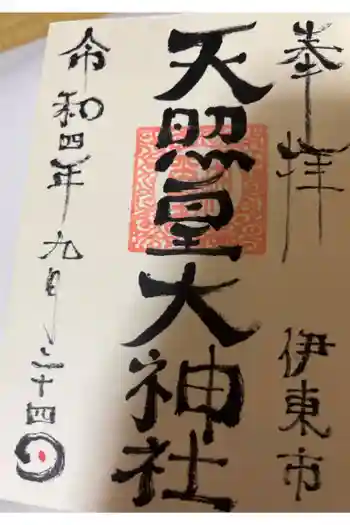 奉拝 伊東市
天照皇大神社
令和四年九月二十四